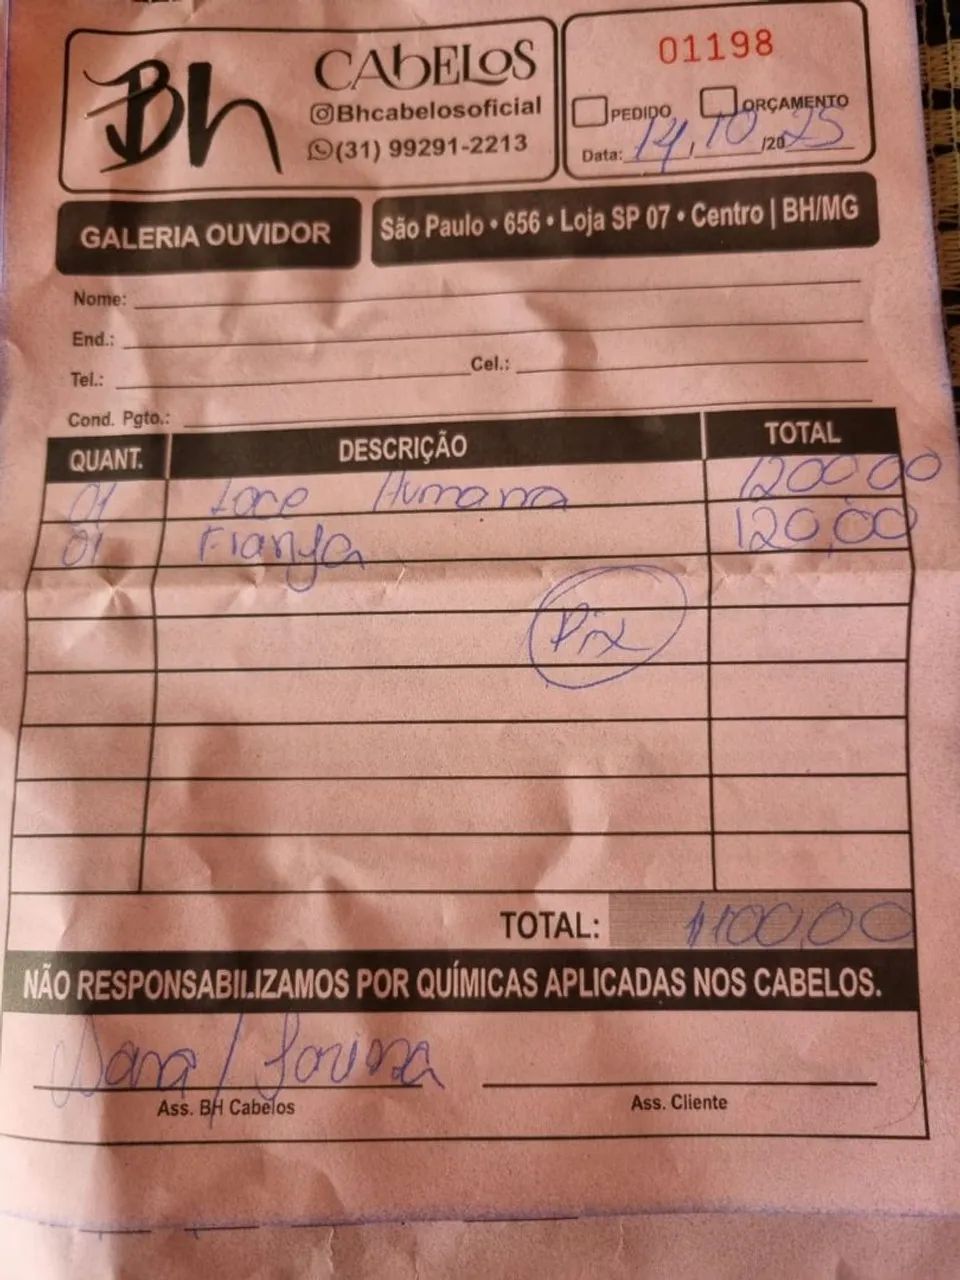 Bh
CABELOS
Bhcabelosoficial
(31) 99291-2213
01198
PEDIDO ORÇAMENTO
Data: 14, 10 /2025
GALERIA OUVIDOR
São Paulo • 656 • Loja SP 07 • Centro | BH/MG
Nome:
End.:
Tel.: Cel.:
Cond. Pgto.:
QUANT. DESCRIÇÃO TOTAL
01 Lace Humana 1200,00
01 Franja 120,00
Pix
TOTAL: 1100,00
NÃO RESPONSABILIZAMOS POR QUÍMICAS APLICADAS NOS CABELOS.
Ass. BH Cabelos
Ass. Cliente